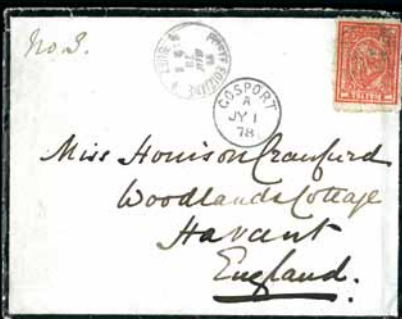 No. 3.
POSTE EGIZIANE
GOSPORT
A
JY 1
78
Miss Houison Craufurd
Woodlands Cottage
Havant
England.